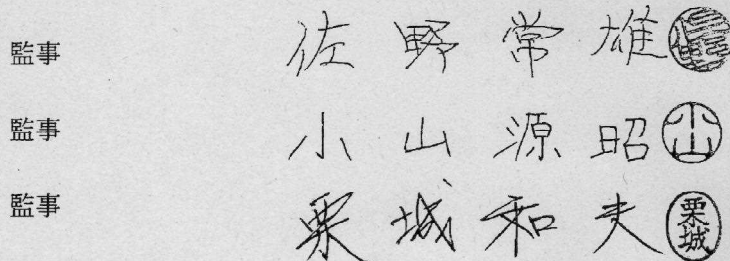 監事 佐野常雄
監事 小山源昭 小山
監事 栗城和夫 栗城